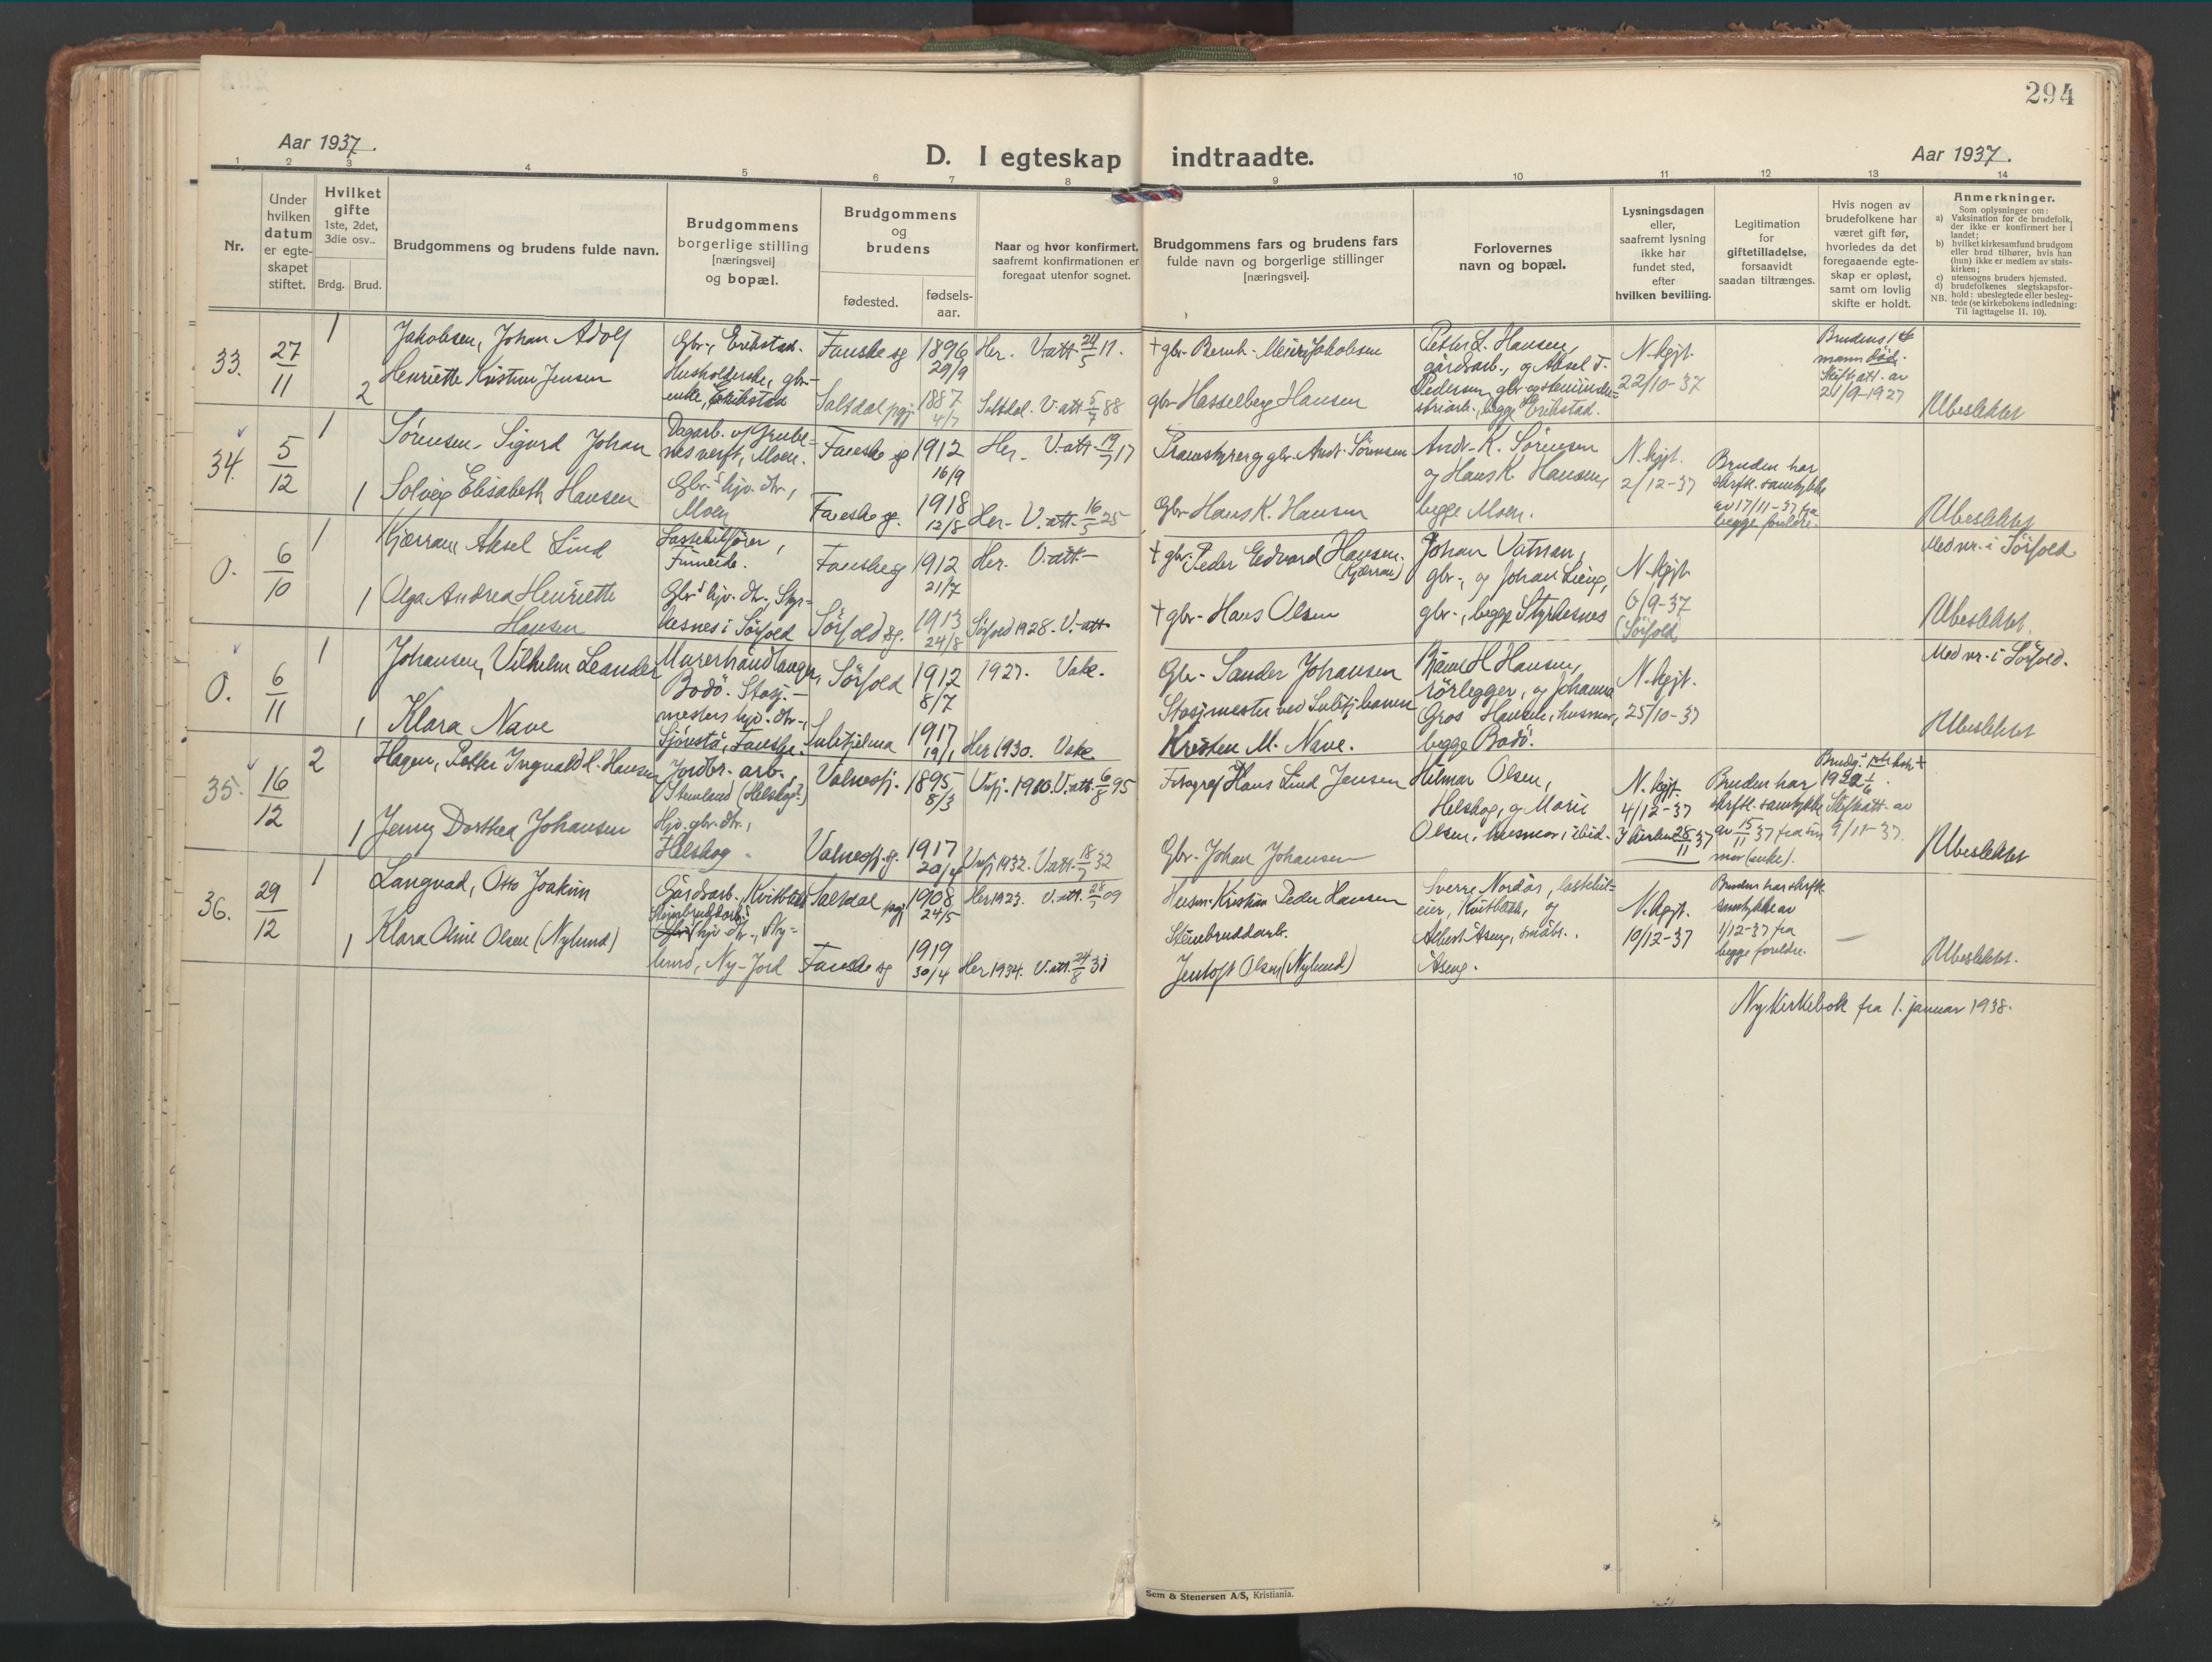 294
Aar 1937.
D. I egteskap indtraadte.
Aar 1937.
1 2 3 4 5 6 7 8 9 10 11 12 13 14
Nr.
Under
hvilken
datum
er egte-
skapet
stiftet.
Hvilket
gifte
1ste, 2det,
3die osv..
Brdg.
Brud.
Brudgommens og brudens fulde navn.
Brudgommens
borgerlige stilling
[næringsvei]
og bopæl.
Brudgommens
og
brudens
fødested.
fødsels-
aar.
Naar og hvor konfirmert,
saafremt konfirmationen er
foregaat utenfor sognet.
Brudgommens fars og brudens fars
fulde navn og borgerlige stillinger
[næringsvei].
Forlovernes
navn og bopæl.
Lysningsdagen
eller,
saafremt lysning
ikke har
fundet sted,
efter
hvilken bevilling.
Legitimation
for
giftetilladelse,
forsaavidt
saadan tiltrænges.
Hvis nogen av
brudefolkene har
været gift før,
hvorledes da det
foregaaende egte-
skap er opløst,
samt om lovlig
skifte er holdt.
Anmerkninger.
Som oplysninger om:
a) Vaksination for de brudefolk,
der ikke er konfirmert her i
landet;
b) hvilket kirkesamfund brudgom
eller brud tilhører, hvis han
(hun) ikke er medlem av stats-
kirken;
c) utensogns bruders hjemsted.
d) brudefolkenes slegtskapsfor-
hold: ubeslegtede eller besleg-
NB. tede (se kirkebokens indledning:
Til iagttagelse II. 10).
33.
27/11
1
Jakobsen, Johan Adolf
Gbr., Erikstad.
Fauske sg
1896
29/9
Her. V.att. 24/5 17.
2
Henriette Kristine Jensen
Husholderske, gbr.-
enke, Erikstad
Saltdal pgj.
1887
4/7
Saltdal. V.att. 5/7 88
† gbr. Bernh. Meier Jakobsen
gbr. Hasselberg Hansen
Peder L. Hansen,
gårdsarb., og Aksel J.
Pedersen, gbr. og stenindu-
striarb., begge Erikstad.
N. kgjt.
22/10-37
Brudens 1ste
mann død.
Skift.att. av
21/9-1927
Ubeslektet
34.
5/12
1
Sørensen, Sigurd Johan
Dagarb. v/ Grube-
nes verft, Moen.
Fauske sg
1912
16/9
Her. V.att. 19/7 17
1
Solveig Elisabeth Hansen
Gbr.s hjv. dtr.,
Moen
Fauske sg.
1918
12/8
Her. V.att. 16/5 25
Pramstyrer og gbr. Andr. Sørensen
Gbr. Hans K. Hansen
Andr. K. Sørensen
og Hans K. Hansen,
begge Moen.
N. kgjt.
2/12-37
Bruden har
skrftl. samtykke
av 17/11-37 fra
begge foreldre.
Ubeslektet
0.
6/10
1
Kjærran, Aksel Lind
Lastebilfører,
Finneide.
Fauske sg
1912
21/7
Her. V.att.
1
Olga Andrea Henriette
Hansen
Gbr.s hjv. dtr., Styr-
kesnes i Sørfold
Sørfold sg.
1913
24/8
Sørfold 1928. V.att
† gbr. Peder Edvard Hansen.
(Kjærran)
† gbr. Hans Olsen
Johan Vatnan,
gbr., og Johan Leine,
gbr., begge Styrkesnes
N. kgjt.
6/9-37
(Sørfold)
Med nr. i Sørfold
Ubeslektet.
0.
6/11
1
Johansen, Vilhelm Leander
Murerhåndlanger,
Bodø.
Sørfold
1912
8/7
1927. Vake.
1
Klara Nave
Stasj.-
mesters hjv. dtr.,
Sjønstå, Fauske.
Sulitjelma
1917
19/1
Her 1930. Vake
Gbr. Sander Johansen
Stasjmester ved Sulitj.banen
Kristen M. Nave.
Hansen,
rørlegger, og Johanna
Gros Hansen, husmor,
begge Bodø.
N. kgjt.
25/10-37
Med nr. i Sørfold.
Ubeslektet
35.
16/12
2
Hagen, Petter Ingvald H. Hansen
Jordbr. arb.,
Stemland (Helskog)
Valnesfj.
1895
8/3
Vnfj. 1910. V.att. 6/8 95
1
Jenny Dorthea Johansen
Hjv. gbr. dtr.,
Helskog.
Valnesfj. sg.
1917
20/4
Vnfj 1932. V.att. 18/7 32
Fotograf Hans Lind Jensen
Gbr. Johan Johansen
Hilmar Olsen,
Helskog, og Marie
Olsen, husmor, ibid.
N. kgjt.
4/12-37
28/11 37
Bruden har
skrftl. samtykke
av 15/11 37 fra sin
mor (enke).
Skifteatt. av
9/11-37.
Ubeslektet
36.
29/12
1
Langvad, Otto Joakim
Gårdsarb., Kvitblikk
Saltdal pgj
1908
24/5
Her 1923. V.att. 28/5 09
1
Klara Oline Olsen (Nylund)
Steinbruddarb.s
hjv. dtr., Ny-
lund, Ny-Jord
Fauske sg
1919
30/4
Her 1934. V.att. 24/8 31
Husm. Kristian Peder Hansen
Steinbruddarb.
Jentoft Olsen (Nylund)
Sverre Nordås, lastebil-
eier, Kvitblikk, og
Albert Åseng, småbr.,
Åseng.
N. kgjt.
10/12-37
Bruden har skrftl.
samtykke av
1/12-37 fra
begge foreldre.
—
Ubeslektet.
Ny kirkebok fra 1. januar 1938.
Sem & Stenersen A/S, Kristiania.